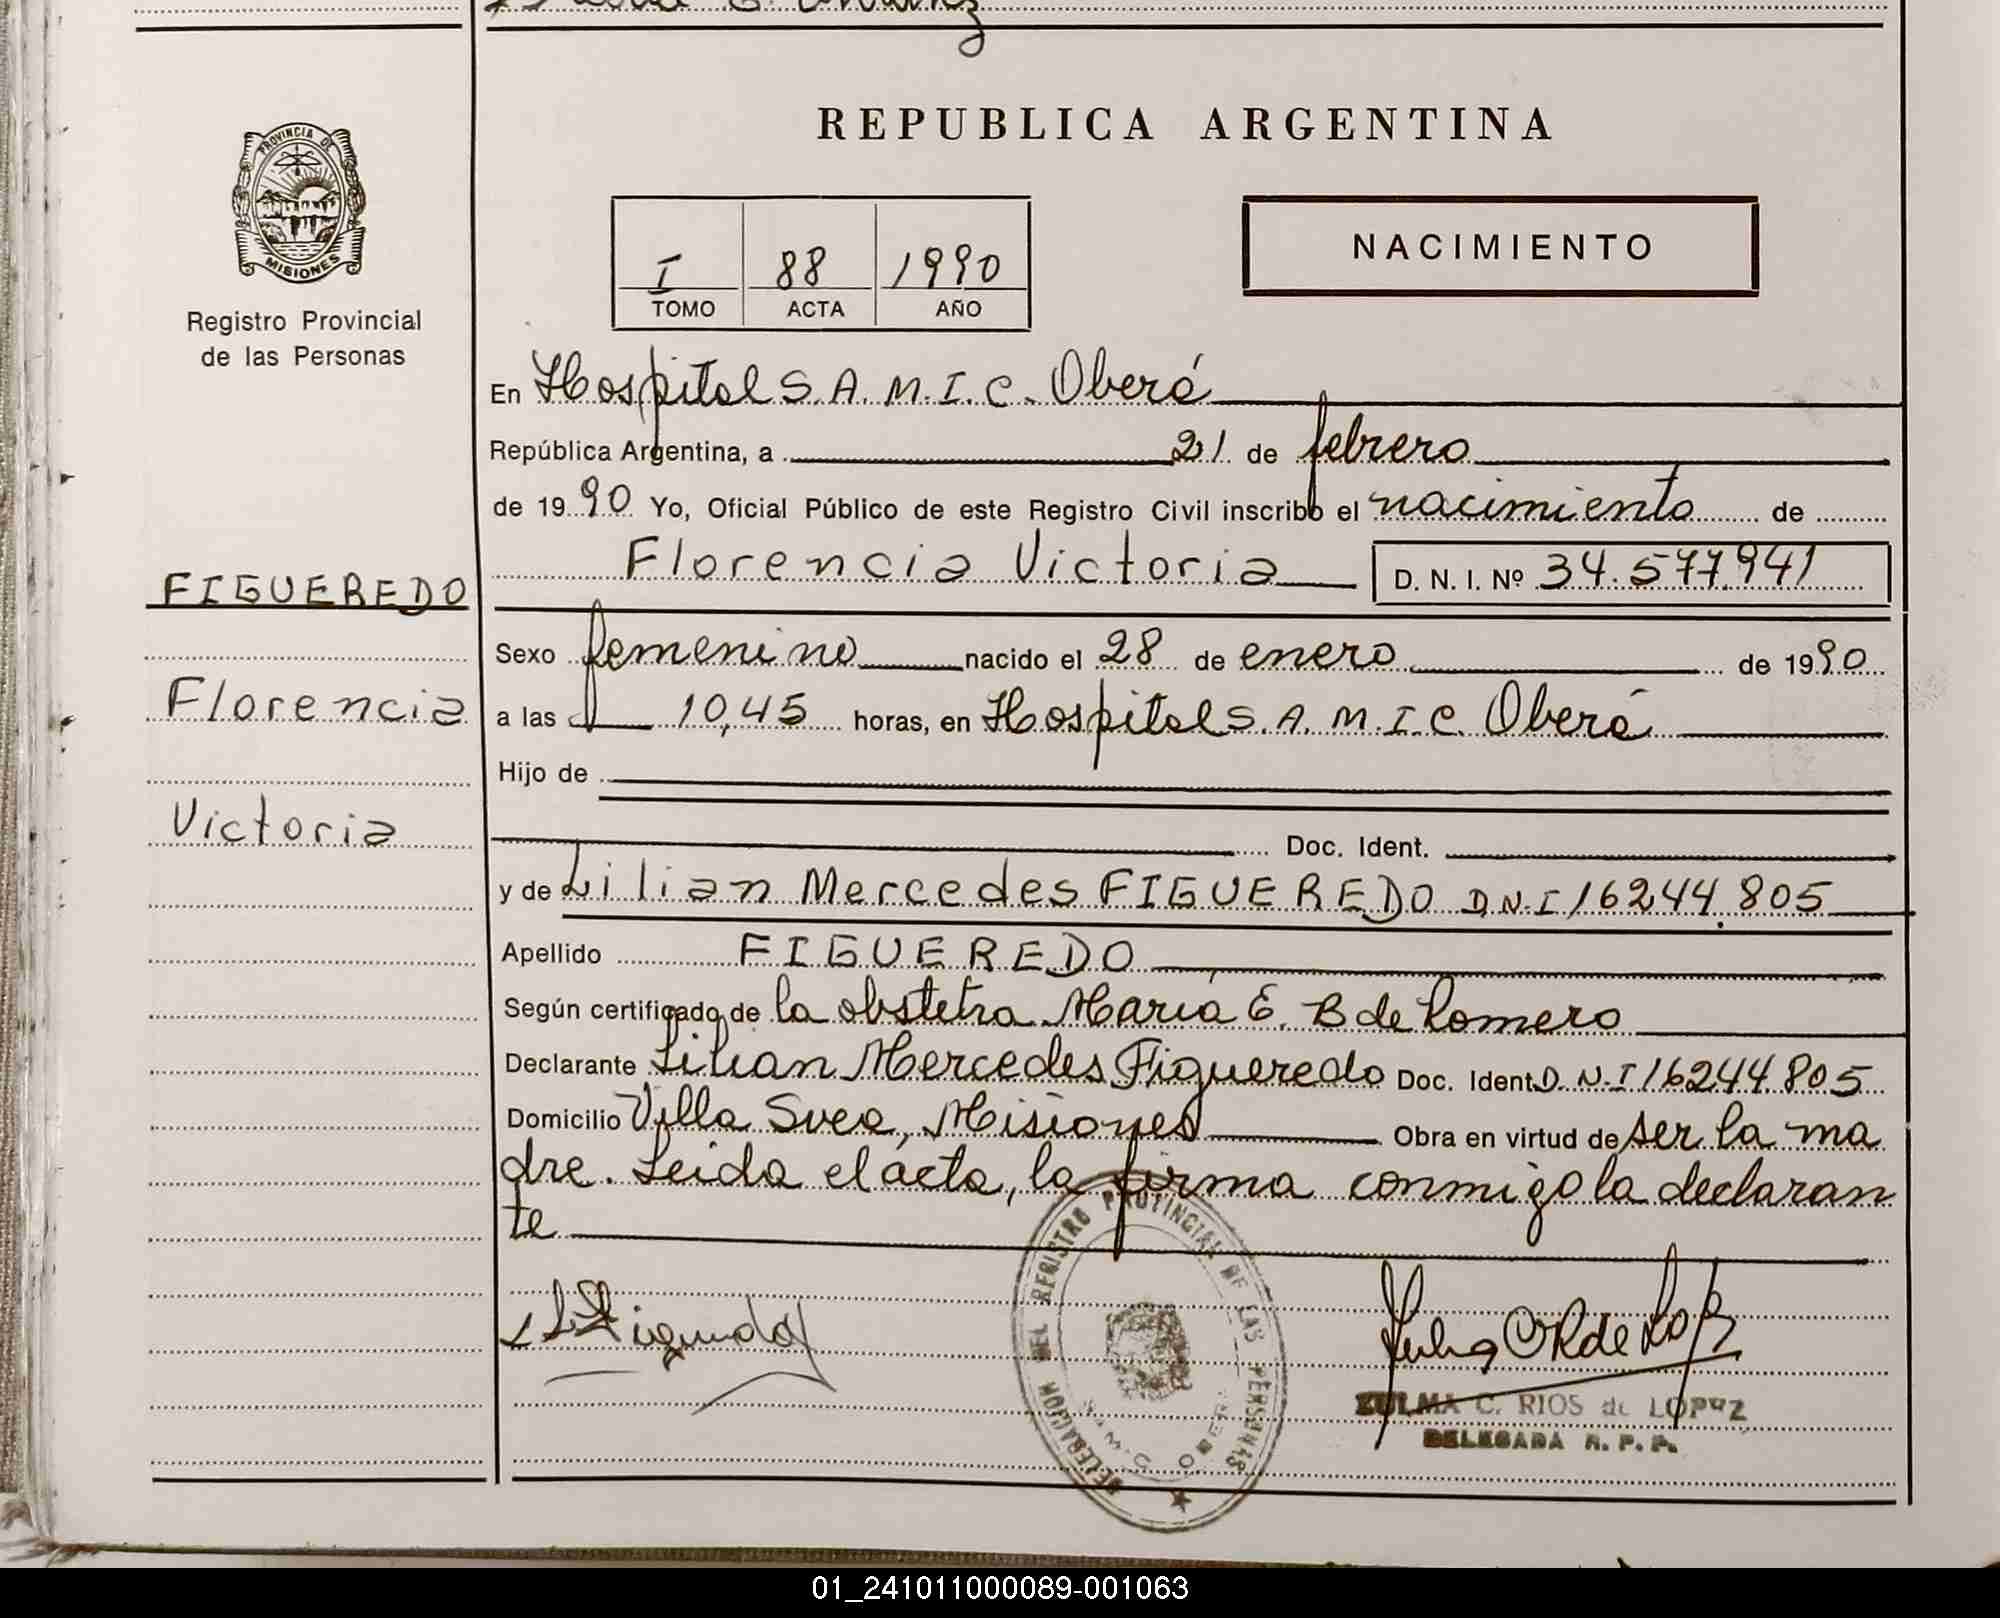 REPUBLICA ARGENTINA
PROVINCIA DE
MISIONES
Registro Provincial
de las Personas
I 88 1990
TOMO ACTA AÑO
NACIMIENTO
En Hospital S.A.M.I.C. Oberá
República Argentina, a 21 de febrero
de 1990 Yo, Oficial Público de este Registro Civil inscribo el nacimiento de
Florencia Victoria D. N. I. Nº 34.577.941
FIGUEREDO
Florencia
Victoria
Sexo femenino nacido el 28 de enero de 1990
a las 10,45 horas, en Hospital S.A.M.I.C. Oberá
Hijo de
Doc. Ident.
y de Lilian Mercedes FIGUEREDO D.N.I 16244.805
Apellido FIGUEREDO
Según certificado de la obstetra María E. B de Romero
Declarante Lilian Mercedes Figueredo Doc. Ident D.N.I 16244.805
Domicilio Villa Svea, Misiones Obra en virtud de ser la ma
dre. Leida el acta, la firma conmigo la declaran
te
DELEGACION DEL REGISTRO PROVINCIAL DE LAS PERSONAS
ZULMA C. RIOS de LOPEZ
DELEGADA R. P. P.
01_241011000089-001063